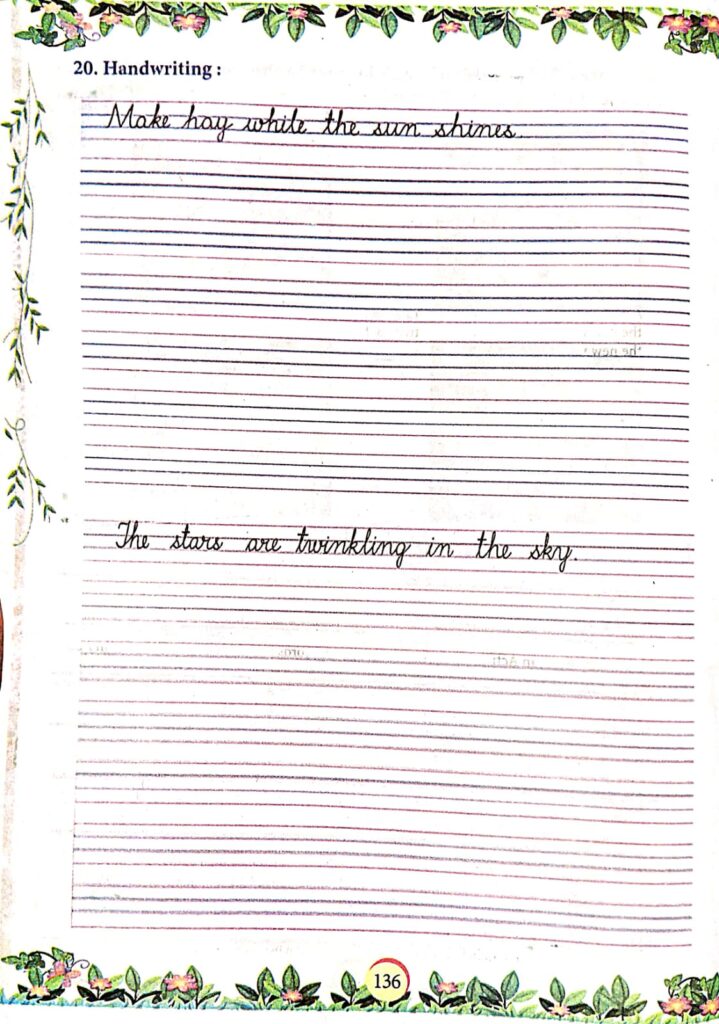 20. Handwriting :
Make hay while the sun shines.
The stars are twinkling in the sky.
136